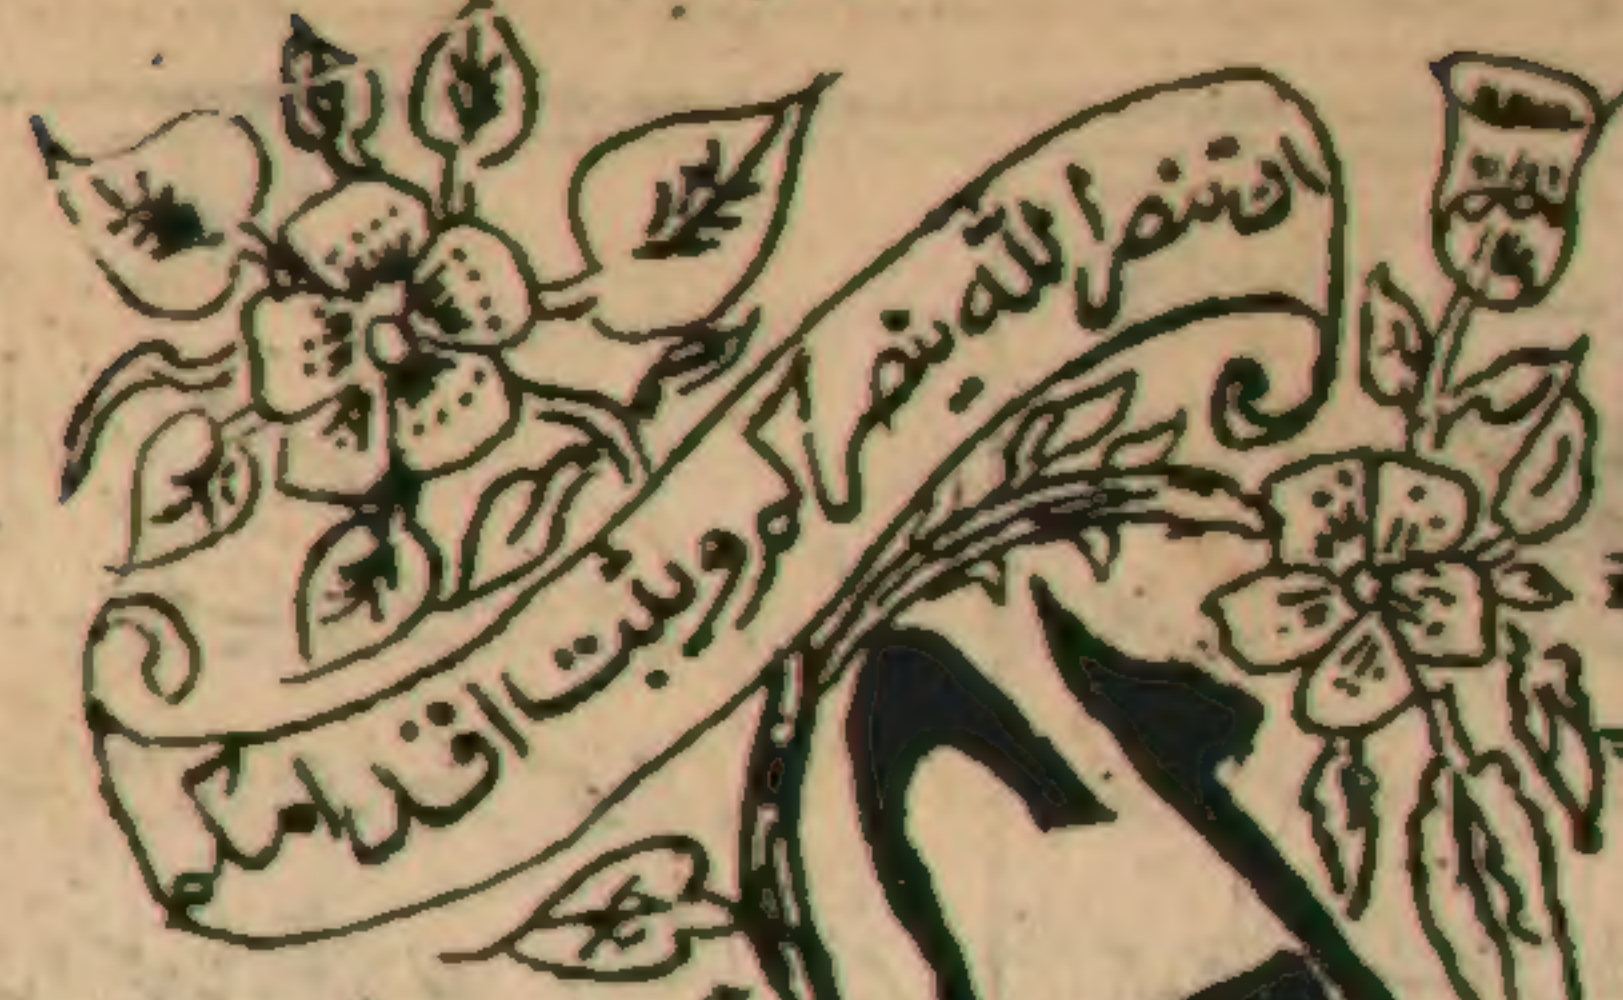 ان تنصروا الله ینصرکم ویثبت اقدامکم